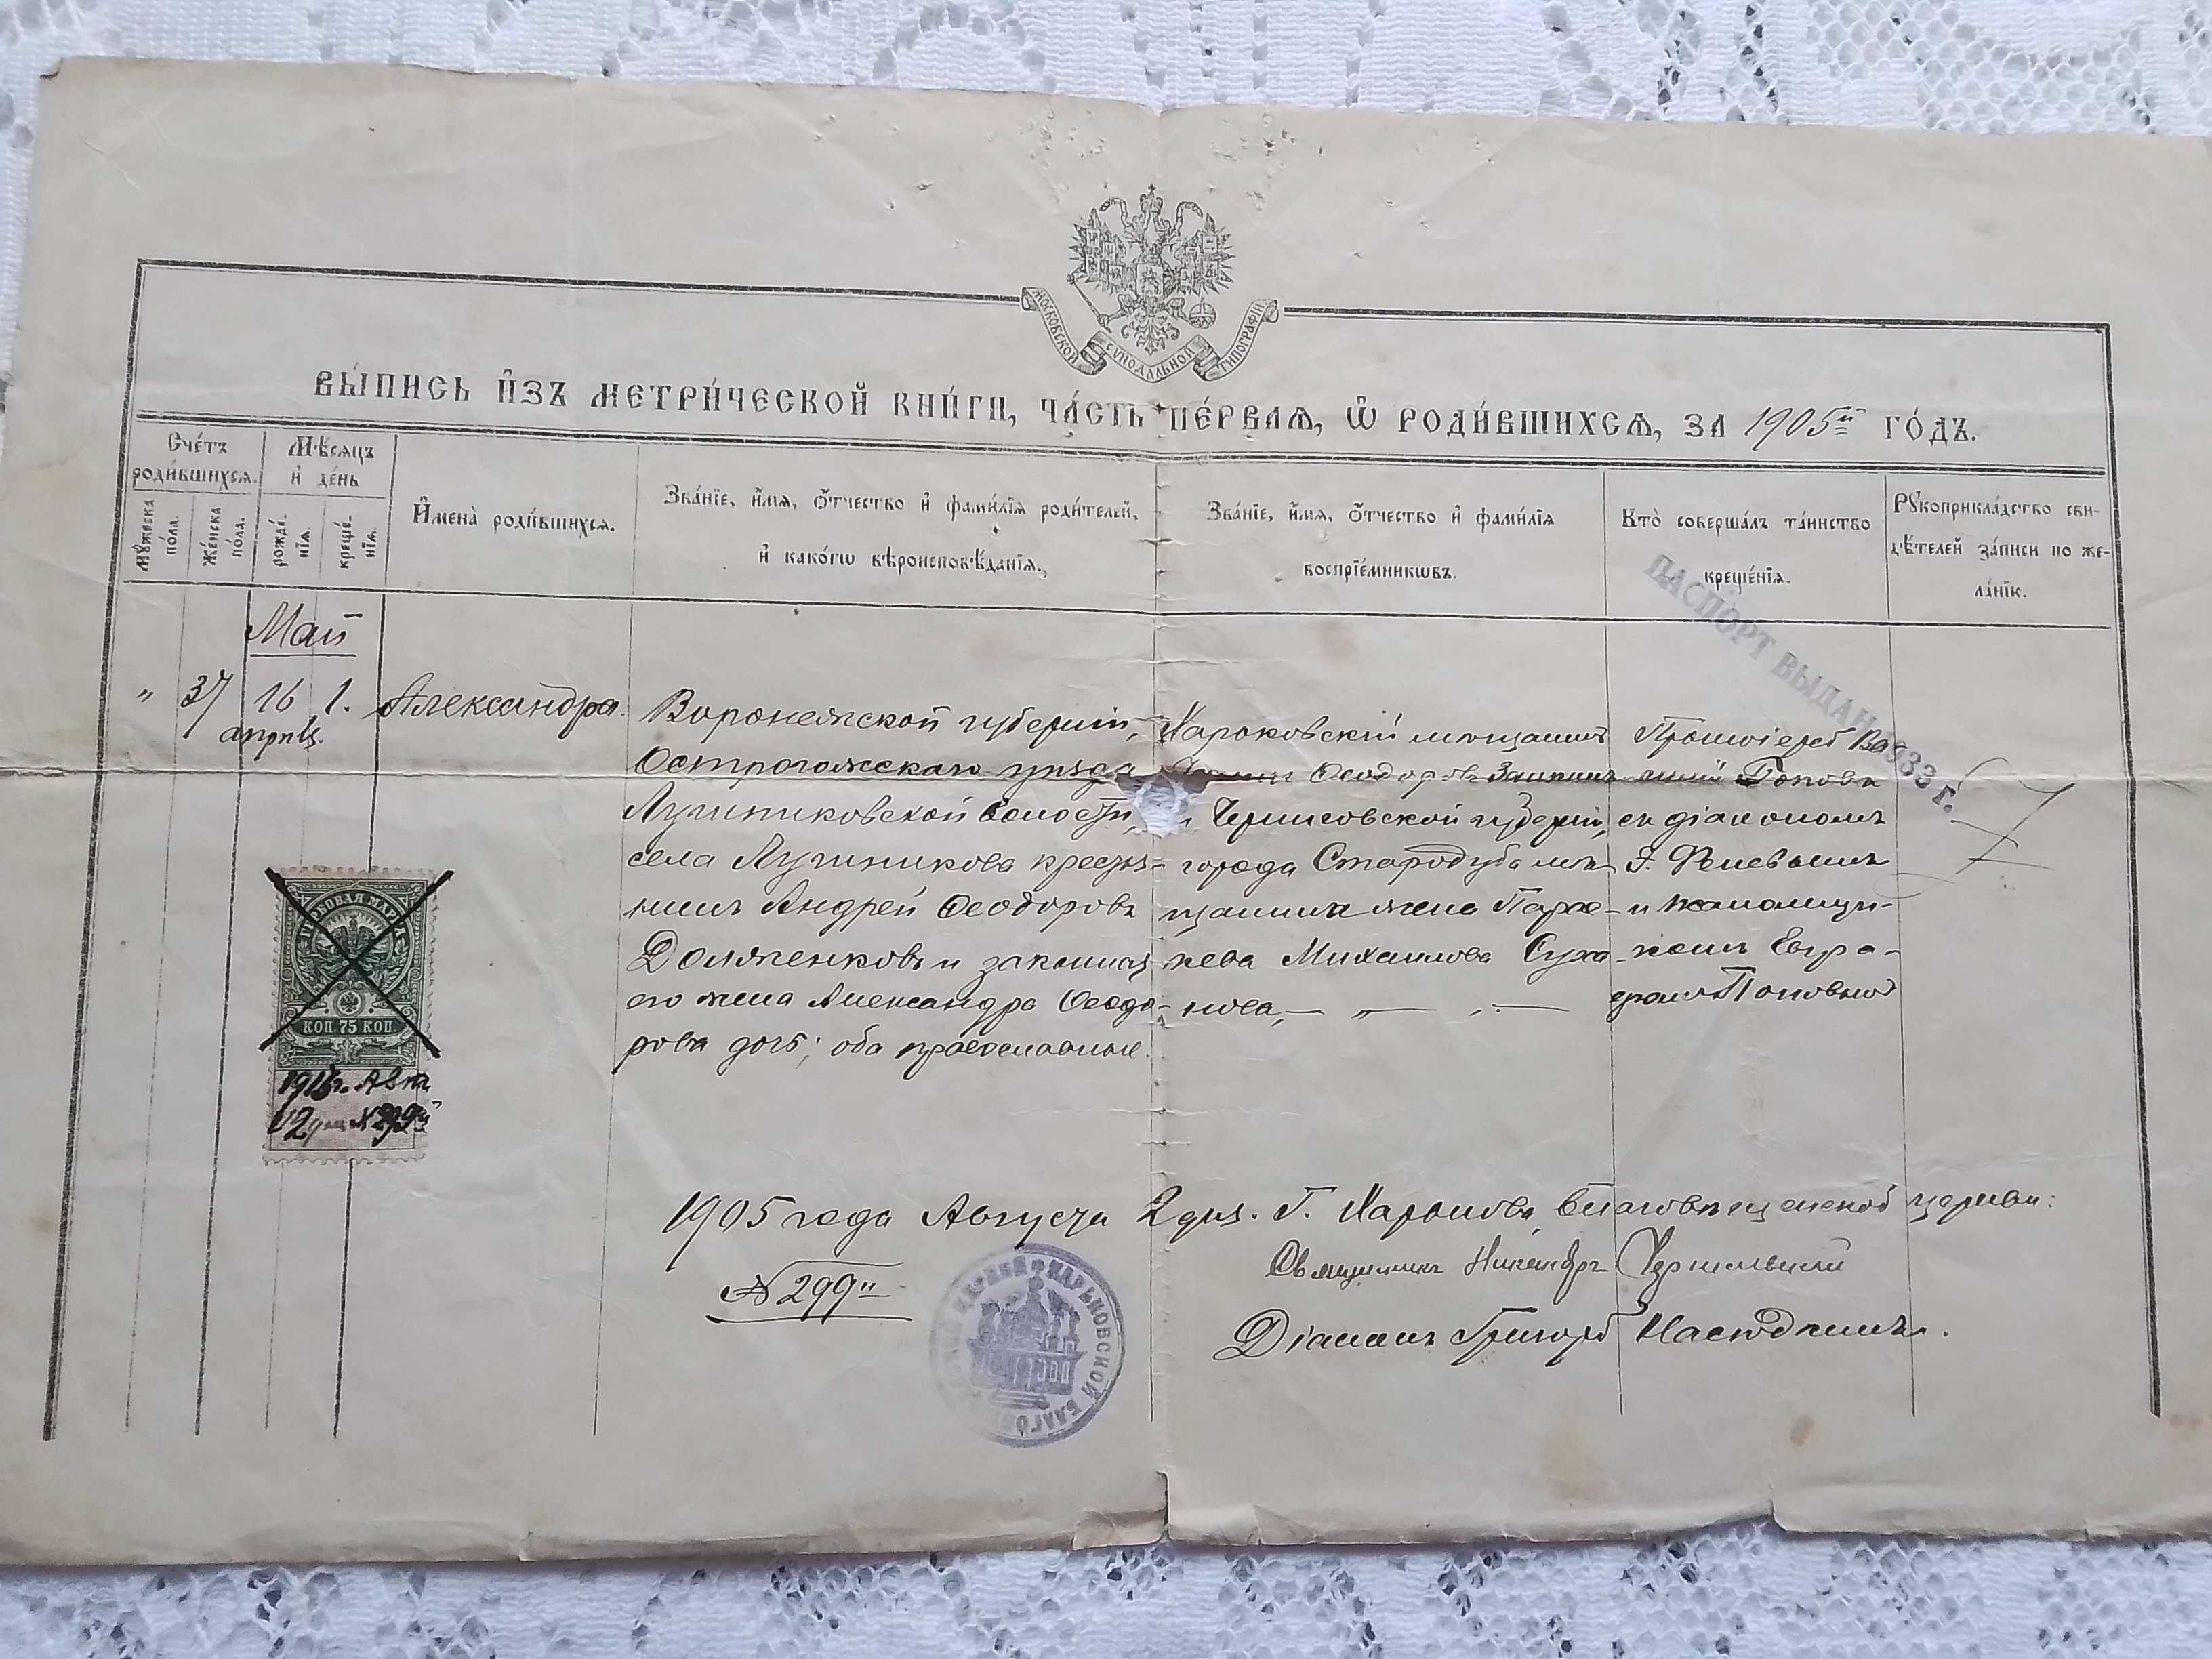 МОСКОВСКОЙ СѴНОДАЛЬНОЙ ТИПОГРАФІИ
ВЫ́ПИСЬ И҆ЗЪ МЕТРИ́ЧЕСКОЙ КНИ́ГИ, ЧА́СТЬ ПЕ́РВАѦ, Ѡ҆ РОДИ́ВШИХСѦ, ЗА 1905й ГО́ДЪ.
Сче́тъ роди́вшихсѧ.
Мꙋ́жеска по́ла.
Же́нска по́ла.
Мѣ́сяцъ и҆ де́нь
рожде́нїѧ.
креще́нїѧ.
И҆мена̀ роди́вшихсѧ.
Зва́нїе, и҆́мѧ, ѻ҆́тчество и҆ фами́лїѧ роди́телей,
и҆ како́гѡ вѣроисповѣ́данїѧ.
Зва́нїе, и҆́мѧ, ѻ҆́тчество и҆ фами́лїѧ
воспрїе́мникѡвъ.
Кто̀ соверша́лъ та́инство
креще́нїѧ.
Рꙋкоприкла́дство сви-
дѣ́телей за́писи по же-
ла́нїю.
ПАСПОРТ ВЫДАН 1933 г.
Май
" 37 16 1. Александра.
апрѣл.
Воронежской губерніи,
Острогожскаго уѣзда
Лушниковской волости,
села Лушникова крестья-
нинъ Андрей Ѳеодоровъ
Долженковъ и законная
его жена Александра Ѳеодо-
рова дочь; оба православные.
Харьковскій мѣщанинъ
Ѳеодоровъ
и Черниговской губерніи,
города Стародуба мѣ-
щанина жена Параске-
кева Михаилова Суха-
нова, — „ — . —
Протоіерей Ва-
силій Поповъ
съ діакономъ
и псаломщи-
комъ Евгра-
фомъ Поповымъ
ГЕРБОВАЯ МАРКА
КОП 75 КОП
12 дня № 299й
1905 года Августа 2 дня. Г. Харькова, Благовѣщенской церкви:
№ 299й
Священникъ Никандръ
Діаконъ Григорій
ХАРЬКОВСКОЙ БЛАГО